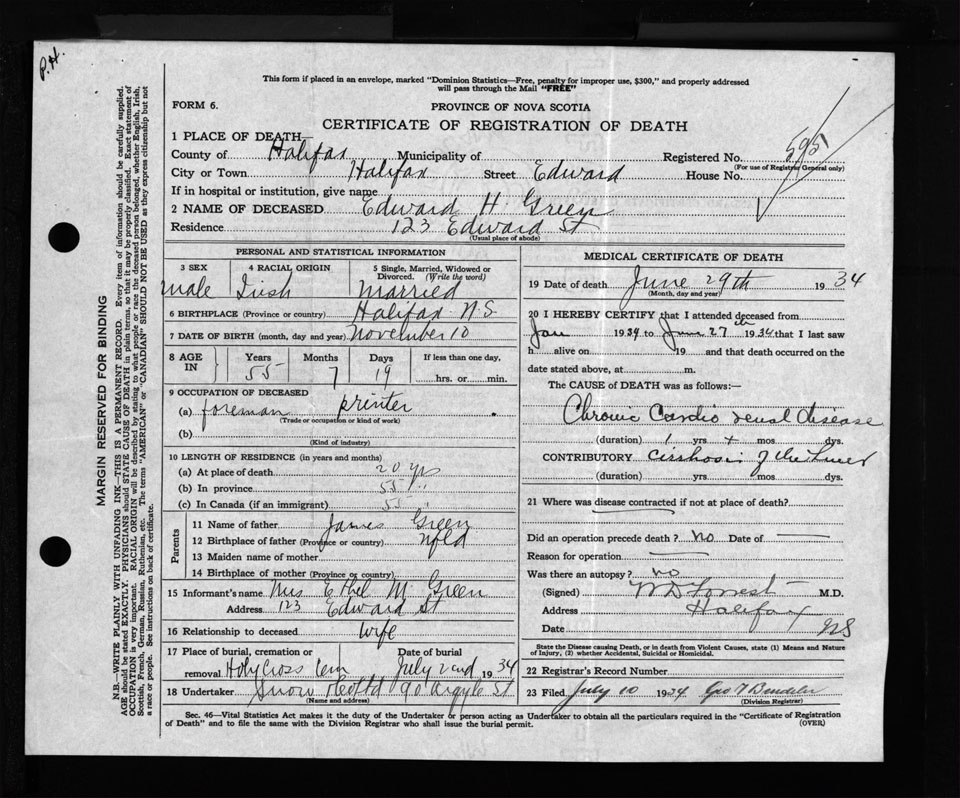 P.H.
This form if placed in an envelope, marked "Dominion Statistics—Free, penalty for improper use, $300," and properly addressed
will pass through the Mail "FREE"
FORM 6.
PROVINCE OF NOVA SCOTIA
CERTIFICATE OF REGISTRATION OF DEATH
1 PLACE OF DEATH—
County of Halifax Municipality of Registered No. 595
(For use of Registrar General only)
City or Town Halifax Street Edward House No.
If in hospital or institution, give name
2 NAME OF DECEASED Edward H. Green
Residence 123 Edward St
(Usual place of abode)
PERSONAL AND STATISTICAL INFORMATION
3 SEX male
4 RACIAL ORIGIN Irish
5 Single, Married, Widowed or Divorced. (Write the word) Married
6 BIRTHPLACE (Province or country) Halifax N.S.
7 DATE OF BIRTH (month, day and year) November 10
8 AGE IN Years 55 Months 7 Days 19 If less than one day, hrs. or min.
9 OCCUPATION OF DECEASED
(a) foreman printer
(Trade or occupation or kind of work)
(b)
(Kind of industry)
10 LENGTH OF RESIDENCE (in years and months)
(a) At place of death 20 yrs
(b) In province 55 "
(c) In Canada (if an immigrant) 55
Parents
11 Name of father James Green
12 Birthplace of father (Province or country) Nfld
13 Maiden name of mother
14 Birthplace of mother (Province or country)
15 Informant's name Mrs Ethel M. Green
Address 123 Edward St
16 Relationship to deceased wife
17 Place of burial, cremation or removal Holy Cross Cem Date of burial July 2nd 1934
18 Undertaker Snow & Co Ltd 90 Argyle St
(Name and address)
MEDICAL CERTIFICATE OF DEATH
19 Date of death June 29th 1934
(Month, day and year)
20 I HEREBY CERTIFY that I attended deceased from
Jan 1934 to June 27th 1934 that I last saw
h alive on 19 and that death occurred on the
date stated above, at m.
The CAUSE of DEATH was as follows:—
Chronic Cardio renal disease
(duration) 1 yrs + mos dys.
CONTRIBUTORY Cirrhosis of the Liver
(duration) yrs mos dys.
21 Where was disease contracted if not at place of death?
Did an operation precede death? No Date of —
Reason for operation —
Was there an autopsy? no
(Signed) W D Forrest M.D.
Address Halifax
Date NS
State the Disease causing Death, or in death from Violent Causes, state (1) Means and Nature
of Injury, (2) whether Accidental, Suicidal or Homicidal.
22 Registrar's Record Number
23 Filed July 10 1934 Geo
(Division Registrar)
Sec. 46—Vital Statistics Act makes it the duty of the Undertaker or person acting as Undertaker to obtain all the particulars required in the "Certificate of Registration
of Death" and to file the same with the Division Registrar who shall issue the burial permit. (OVER)
MARGIN RESERVED FOR BINDING
N.B.—WRITE PLAINLY WITH UNFADING INK—THIS IS A PERMANENT RECORD. Every item of information should be carefully supplied.
AGE should be stated EXACTLY. PHYSICIANS should STATE CAUSE OF DEATH in plain terms, so that it may be properly classified. Exact statement of
OCCUPATION is very important. RACIAL ORIGIN will be described by stating to what people or race the deceased person belonged, whether English, Irish,
Scottish, French, German, Russian, Ruthenian, etc. The terms "AMERICAN" or "CANADIAN" SHOULD NOT BE USED as they express citizenship but not
a race or people. See instructions on back of certificate.